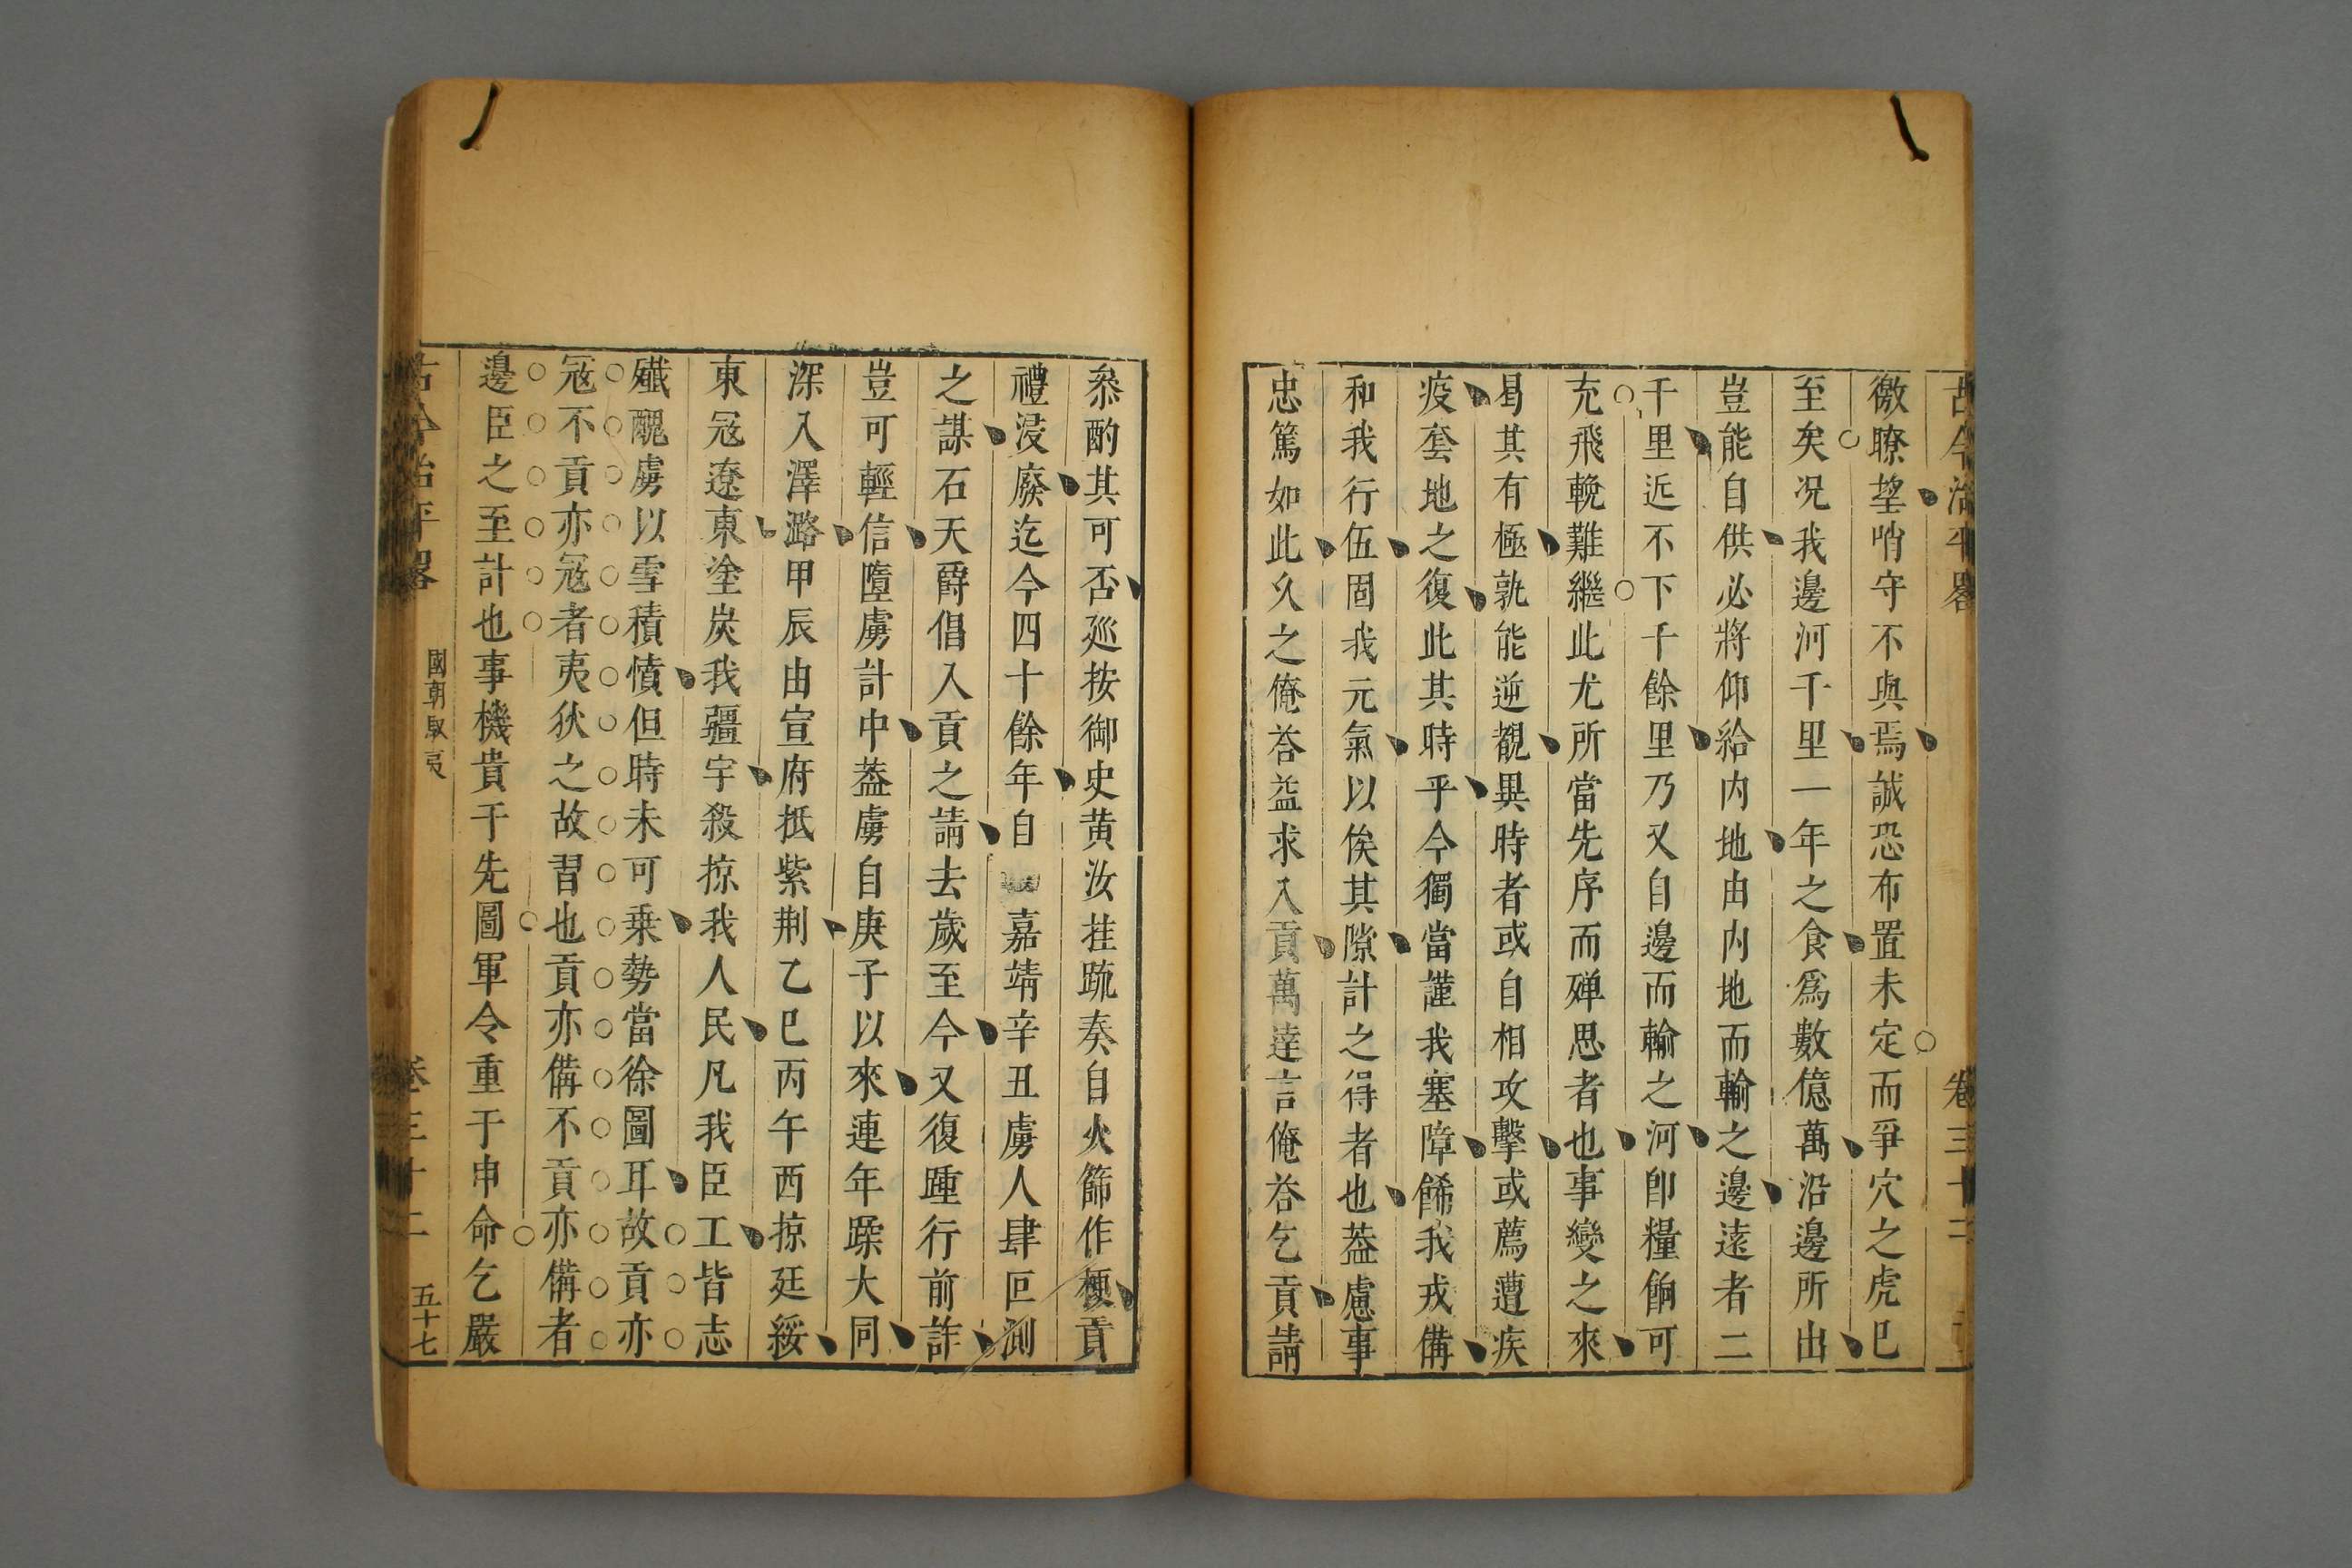 古今治平畧 卷三十二
徼瞭望哨守不與焉誠恐布置未定而爭穴之虎已
至矣况我邊河千里一年之食爲數億萬沿邊所出
豈能自供必將仰給内地由内地而輸之邊遠者二
千里近不下千餘里乃又自邊而輸之河卽糧餉可
充飛輓難繼此尤所當先序而殫思者也事變之來
曷其有極孰能逆覩異時者或自相攻擊或薦遭疾
疫套地之復此其時乎今獨當謹我塞障餙我戎備
和我行伍固我元氣以俟其隙計之得者也葢慮事
忠篤如此久之俺荅益求入貢萬達言俺荅乞貢請
叅酌其可否廵按御史黄汝桂䟽奏自火篩作梗貢
禮浸廢迄今四十餘年自 嘉靖辛丑虜人肆叵測
之謀石天爵倡入貢之請去歲至今又復踵行前詐
豈可輕信墮虜計中葢虜自庚子以來連年蹂大同
深入澤潞甲辰由宣府抵紫荆乙巳丙午西掠延綏
東冦遼東塗炭我疆宇殺掠我人民凡我臣工皆志
殲醜虜以雪積憤但時未可乗勢當徐圖耳故貢亦
冦不貢亦冦者夷狄之故習也貢亦備不貢亦備者
邊臣之至計也事機貴于先圖軍令重于申命乞嚴
古今治平畧 國朝馭夷 卷三十二 五十七